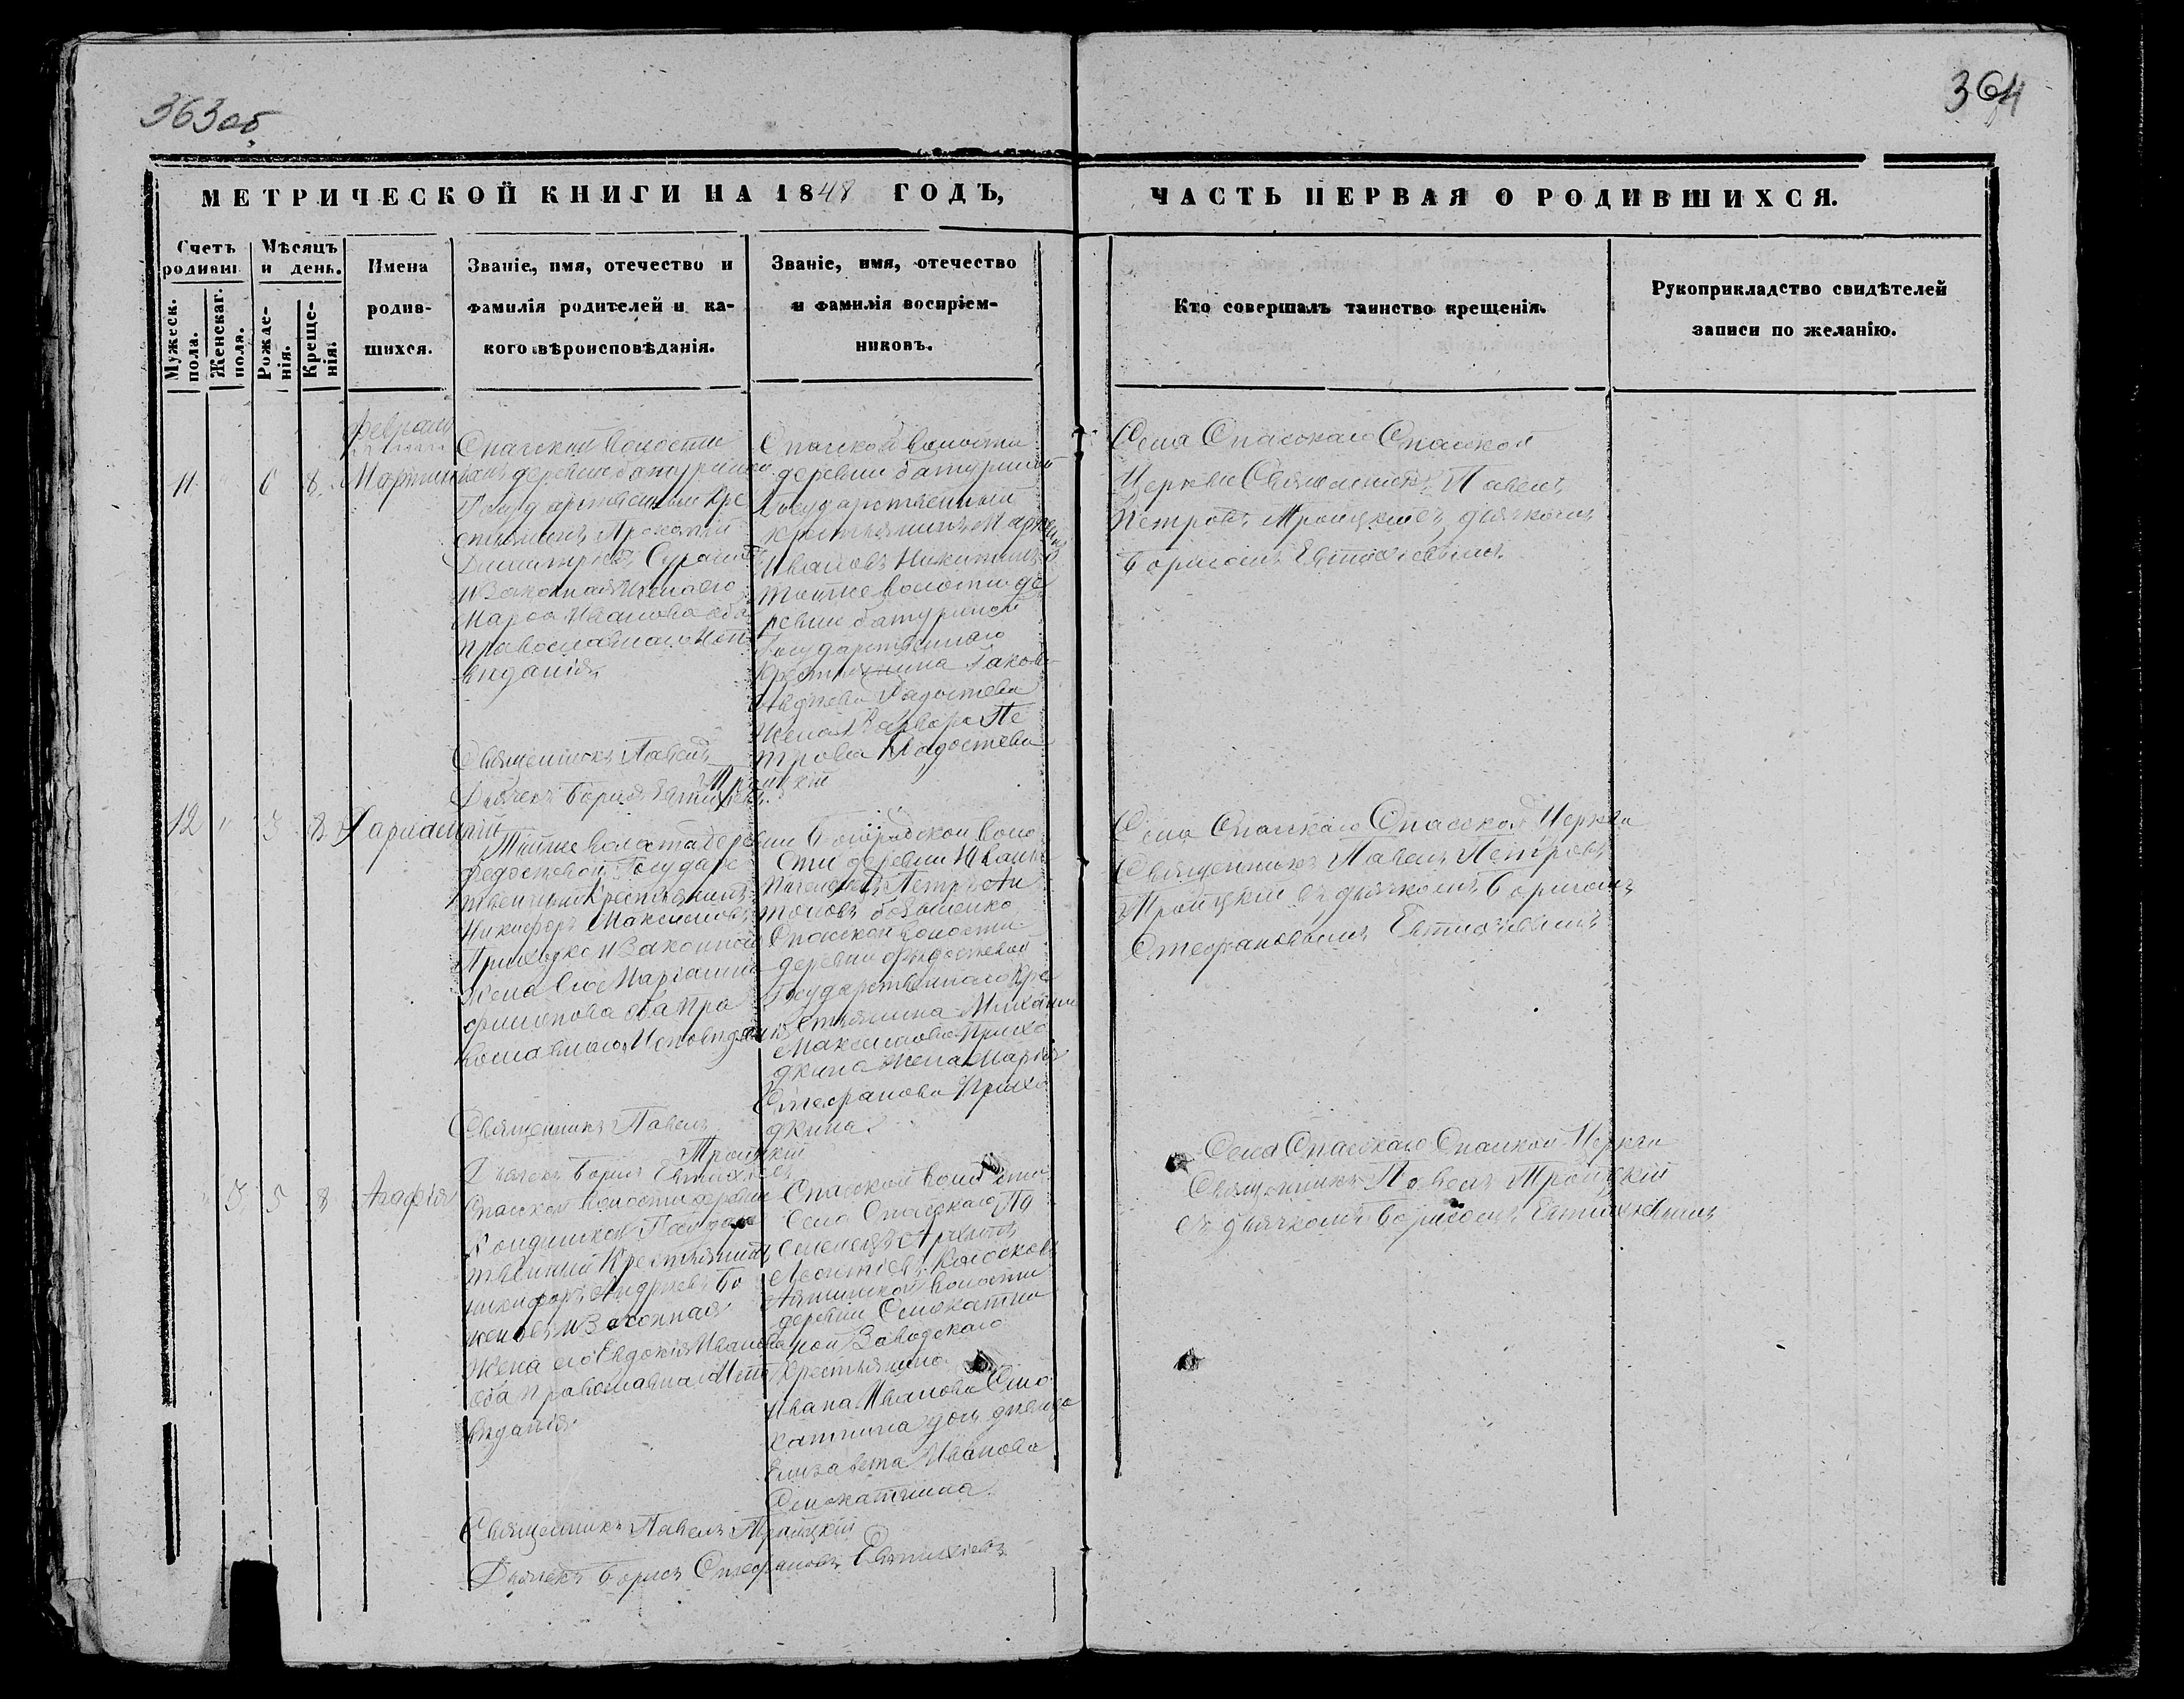 363 об
364
МЕТРИЧЕСКОЙ КНИГИ НА 1848 ГОДЪ,
ЧАСТЬ ПЕРВАЯ О РОДИВШИХСЯ.
Счетъ родивш.
Мужеск. пола.
Женскаг. пола.
Мѣсяцъ и день.
Рожде-
нія.
Креще-
нія.
Имена
родив-
шихся.
Званіе, имя, отечество и
фамилія родителей и ка-
кого вѣроисповѣданія.
Званіе, имя, отечество
и фамилія воспріем-
никовъ.
Кто совершалъ таинство крещенія.
Рукоприкладство свидѣтелей
записи по желанію.
Февраль
11 " 6 8 Мартинъ
Спасской волости
деревни батуриной
Государственный Кре
стьянинъ Прокопій
Димитріевъ
и Законная Жена его
Марфа Иванова оба
православнаго Испо
вѣданія
Священникъ Павелъ
Троицкій
Дьячекъ Борисъ Евтихіевъ
Спасской волости
деревни батуриной
Государственный
крестьянинъ
Ивановъ Никитинъ
тойже волости де
ревни батуриной
Государственнаго
Крестьянина Іакова
Радостева
Жена Варвара Пе
трова Радостева
Села Спасскаго Спасской
Церкви Священникъ Павелъ
Петровъ Троицкій съ дьячкомъ
Борисомъ Евтихіевымъ
12 " 5 8
Тойже волости деревни
Федосеевой Государс
твенный Крестьянинъ
Никифоръ Максимовъ
Приходко и Законная
Жена его Маріамна
Филипова оба пра
вославнаго Исповѣданія
Священникъ Павелъ
Троицкій
Дьячекъ Борисъ Евтихіевъ
Богородской воло
сти деревни
Петръ Ан
тоновъ
Спасской волости
деревни Федосеевой
Государственнаго Кре
стьянина Михаила
Максимова Прихо
дкина Жена Марія
Стефанова Прихо
дкина
Села Спасскаго Спасской Церкви
Священникъ Павелъ Петровъ
Троицкій съ дьячкомъ Борисомъ
Стефановымъ Евтихіевымъ
" 3 5 8 Агафія
Спасской волости деревни
Государс
твенный Крестьянинъ
Никифоръ Андреевъ Бо
женовъ и Законная
Жена его Евдокія Иванова
оба православнаго Испо
вѣданія
Священникъ Павелъ Троицкій
Дьячекъ Борисъ Стефановъ Евтихіевъ
Спасской волости
села Спасскаго По
селенецъ Архипъ
Леонтіевъ
волости
деревни
Заводскаго
Крестьянина
Ивана Иванова
дочь дѣвица
Елизавета Иванова
Села Спасскаго Спасской Церкви
Священникъ Павелъ Троицкій
съ дьячкомъ Борисомъ Евтихіевымъ